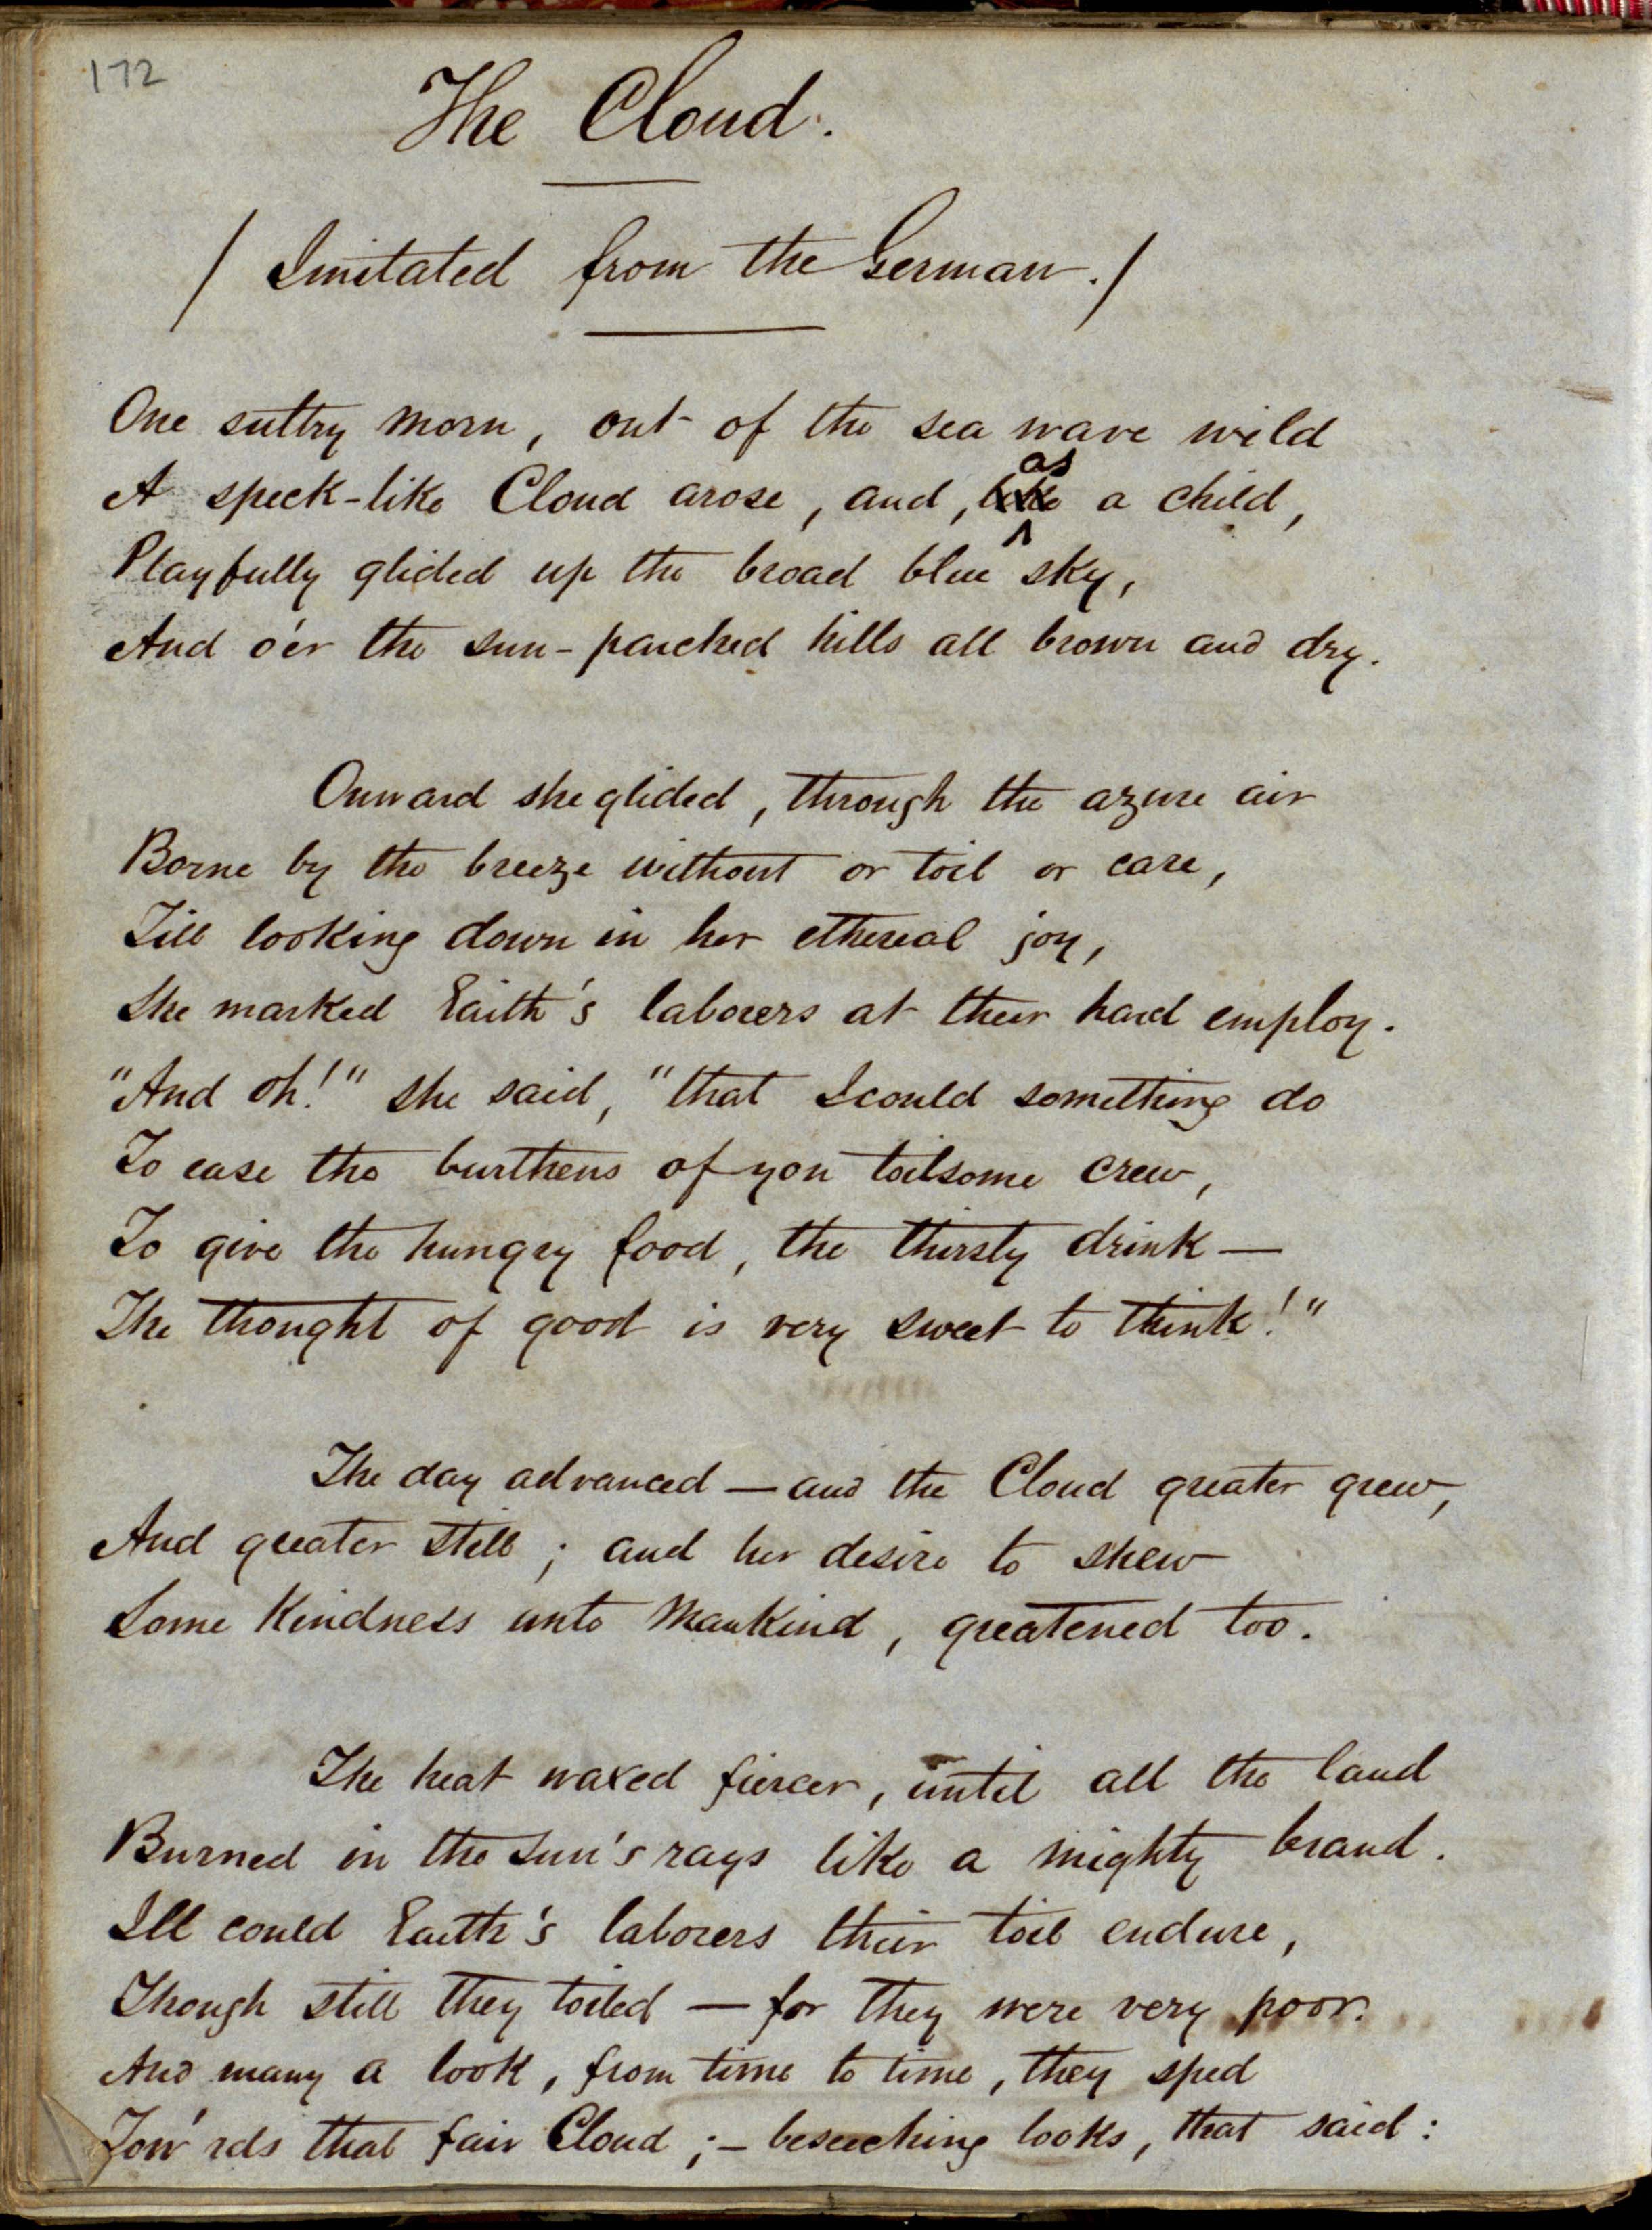 172
The Cloud.
/ Imitated from the German. /
One sultry morn, out of the sea wave wild
as
A speck-like Cloud arose, and, like a child,
Playfully glided up the broad blue sky,
And o'er the sun-parched hills all brown and dry.
Onward she glided, through the azure air
Borne by the breeze without or toil or care,
Till looking down in her ethereal joy,
She marked Earth's laborers at their hard employ.
"And oh!" she said, "that I could something do
To ease the burthens of yon toilsome crew,
To give the hungry food, the thirsty drink —
The thought of good is very sweet to think!"
The day advanced — and the Cloud greater grew,
And greater still; and her desire to shew
Some kindness unto Mankind, greatened too.
The heat waxed fiercer, until all the land
Burned in the sun's rays like a mighty brand.
Ill could Earth's laborers their toil endure,
Though still they toiled — for they were very poor.
And many a look, from time to time, they sped
Tow'rds that fair Cloud; — beseeching looks, that said: